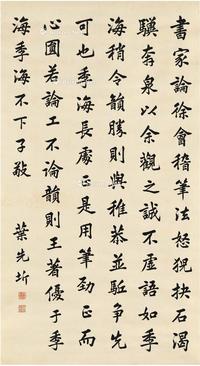 書家論徐會稽筆法怒猊抉石渴
驥奔泉以余觀之誠不虛語如季
海稍令韻勝則與稚恭並駈爭先
可也季海長處正是用筆勁正而
心圓若論工不論韻則王著優于季
海季海不下子敬
葉先圻